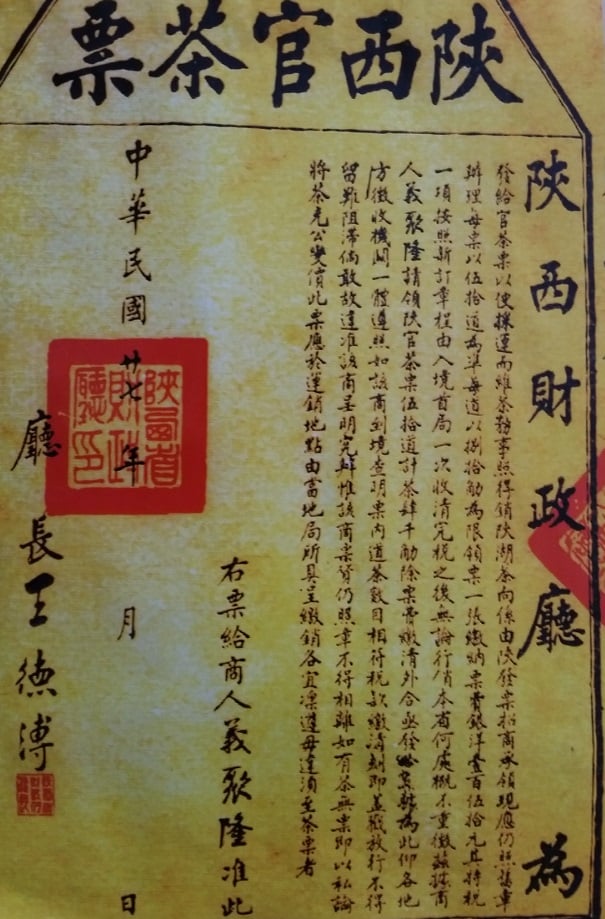 陝西官茶票
陝西財政廳為
發給官茶票以便採運而維茶務事照得銷陝湖茶向係由陝發票招商承領現應仍照舊章
辦理每票以伍拾道為準每道以捌拾觔為限領票一張繳納票費銀洋壹百伍拾元其特稅
一項按照新訂章程由入境首局一次收清完稅之後無論行銷本省何處概不重徵茲據商
人義聚隆請領陝官茶票伍拾道計茶肆千觔除票費繳清外合亟發給為此仰各地
方徵收機關一體遵照如該商到境查明票內道茶數目相符稅款繳清刻即蓋戳放行不得
留難阻滯倘敢故違准該商呈明究辦惟該商票貨仍照章不得相離如有茶無票即以私論
將茶充公變價此票應於運銷地點由當地局所具呈繳銷各宜凜遵毋違須至茶票者
右票給商人義聚隆准此
中華民國廿七年 月 日
陝西省財政廳印
廳長王德溥